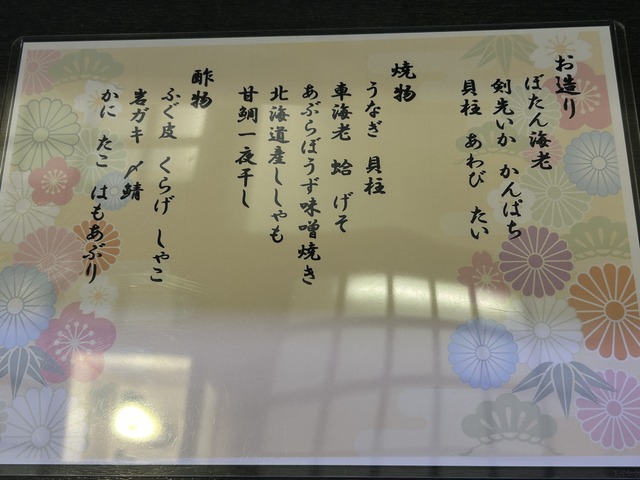 お造り
ぼたん海老
剣先いか かんぱち
貝柱 あわび たい
焼物
うなぎ 貝柱
車海老 蛤 げそ
あぶらぼうず味噌焼き
北海道産ししゃも
甘鯛一夜干し
酢物
ふぐ皮 くらげ しゃこ
岩ガキ 〆鯖
かに たこ はもあぶり